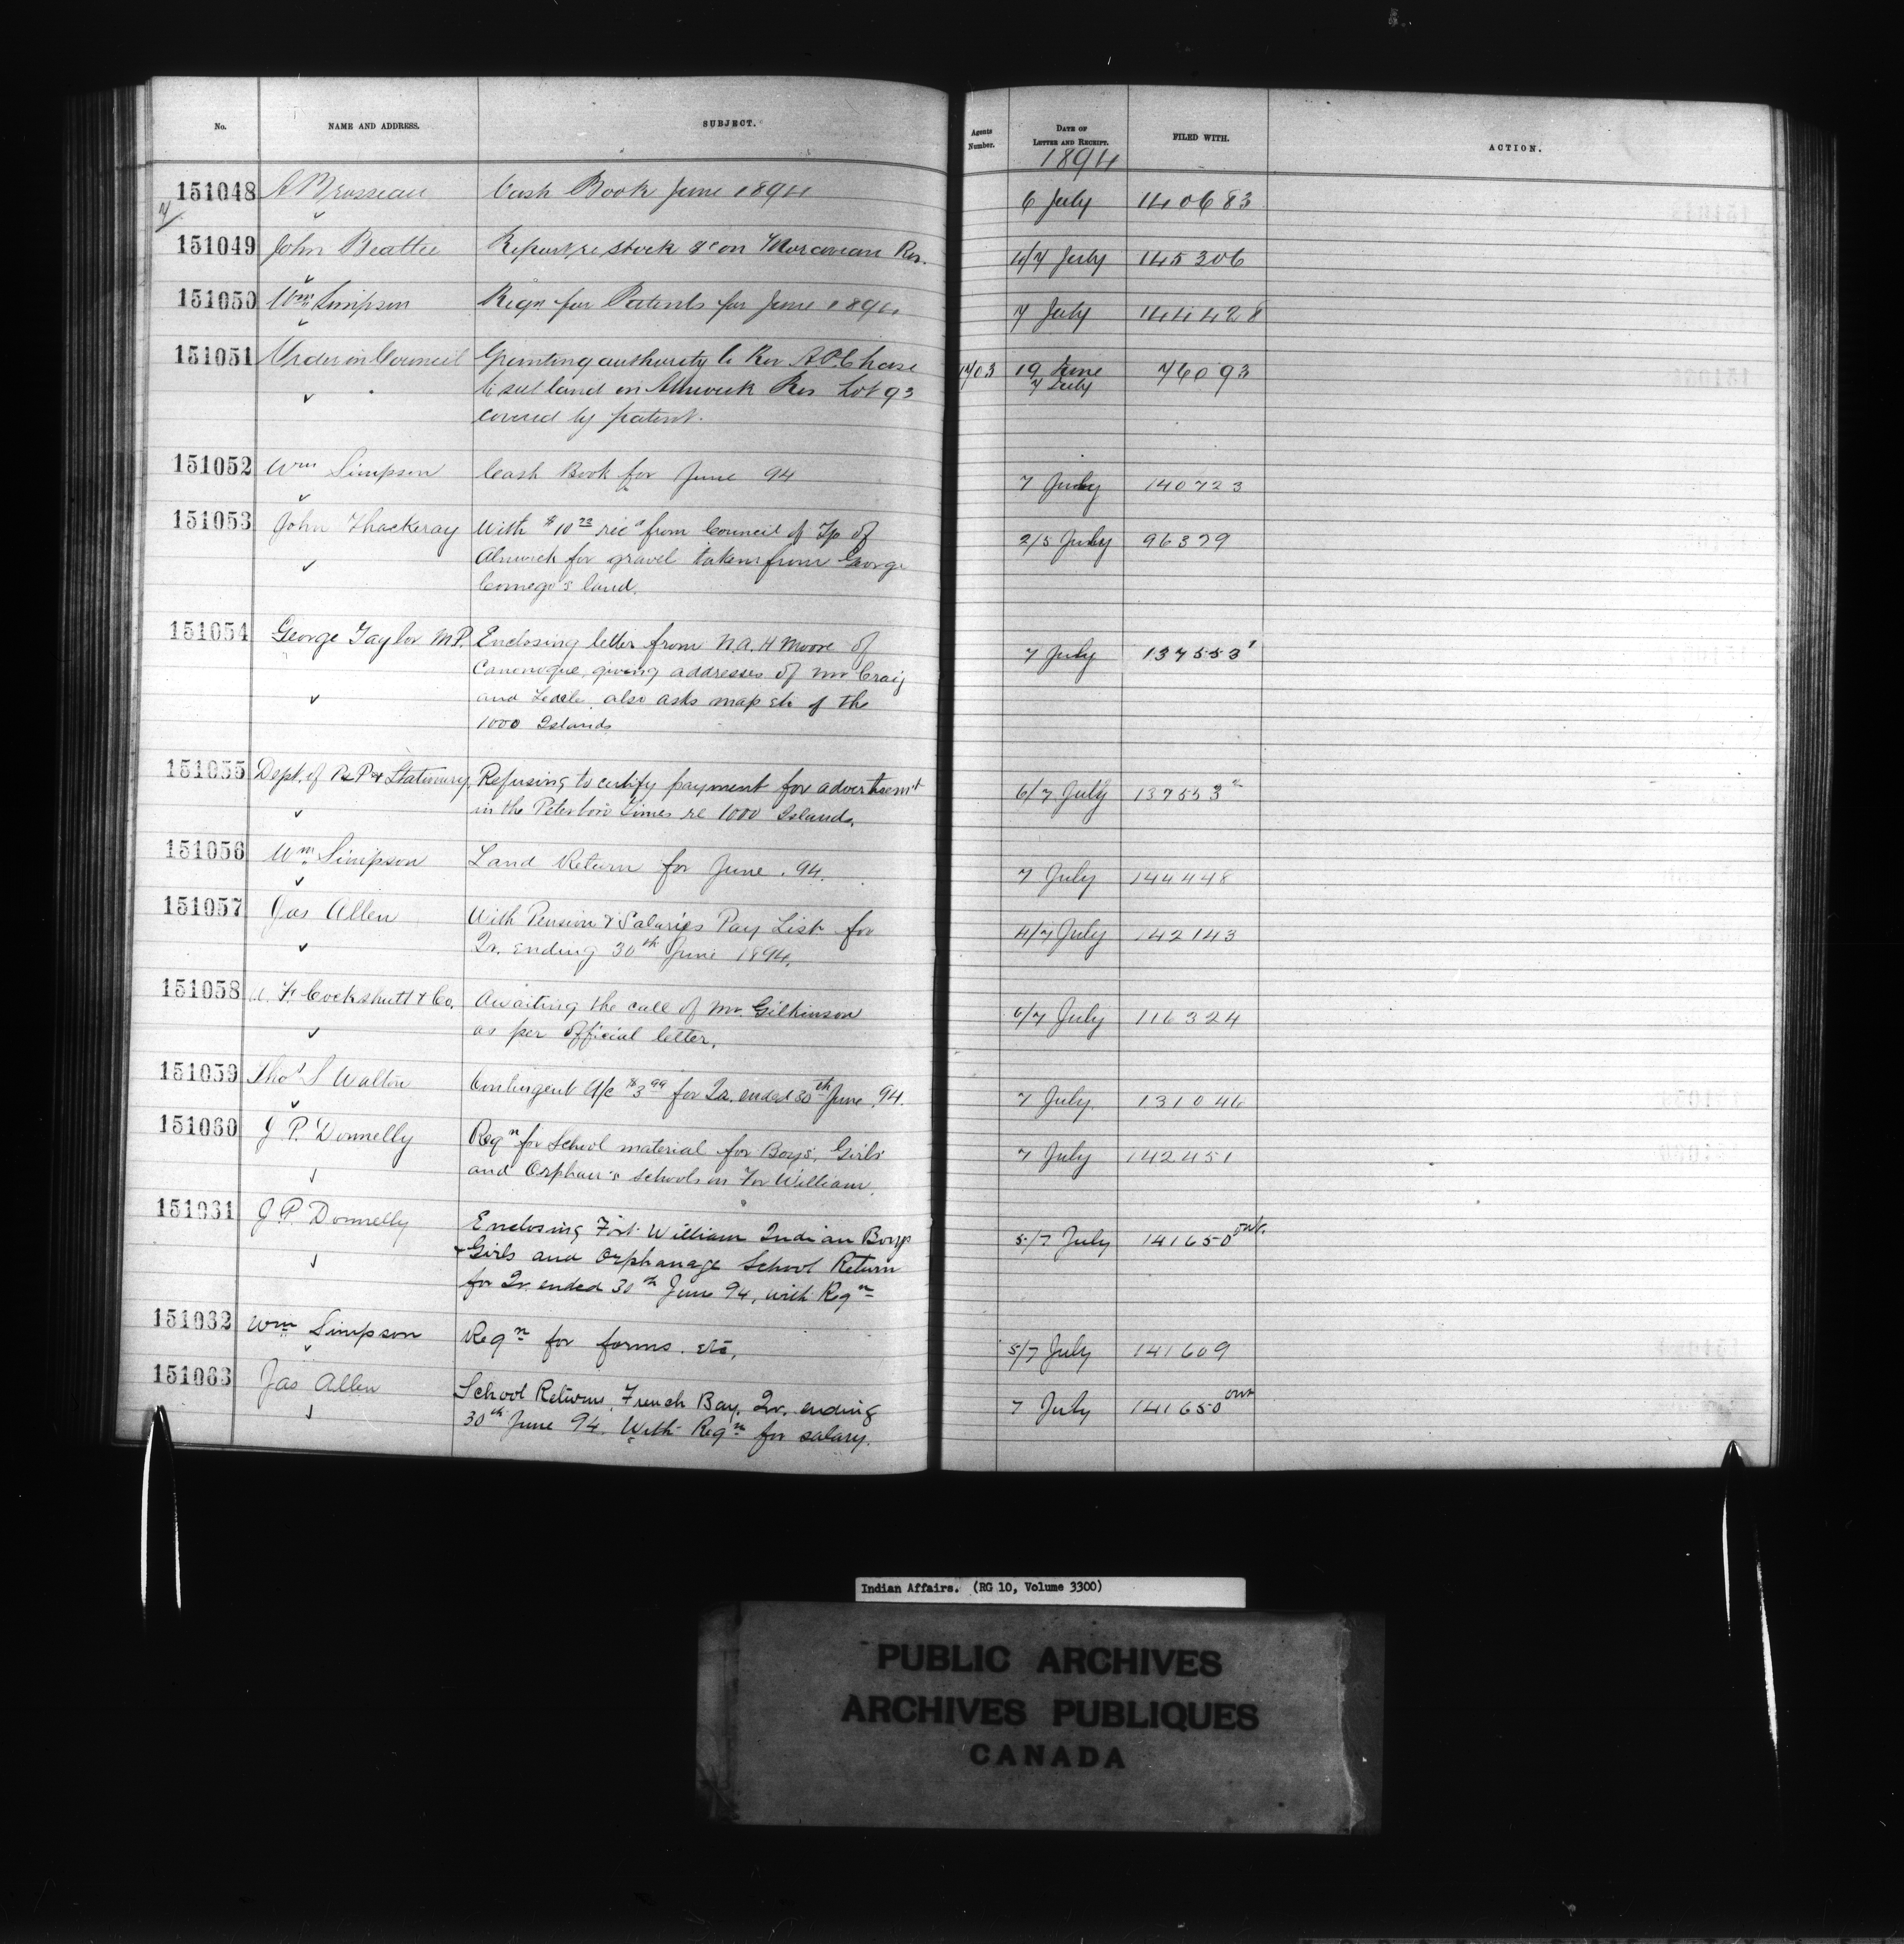 No. NAME AND ADDRESS. SUBJECT. Agents Number. DATE OF LETTER AND RECEIPT. FILED WITH. ACTION.
1894
151048 A Brosseau Cash Book June 1894 6 July 140683
7/
151049 John Beattie Report re stock &c on Moravian Res. 6/7 July 145306
151050 Wm Simpson Reqn for Patents for June 1894 7 July 144428
151051 Order in Council Granting authority to Rev A.P. Chase 1703 19 June 76093
to sell land on Alnwick Res Lot 93 7 July
covered by patent.
151052 Wm Simpson Cash Book for June 94 7 July 140723
151053 John Thackeray With $10 73 recd from Council of Tp of 2/5 July 96379
Alnwick for gravel taken from George
Comego's land.
151054 George Taylor M.P. Enclosing letter from N.A. H Moore of 7 July 137553 1
Cananoque, giving addresses of Mr. Craig
and also asks map etc of the
1000 Islands
151055 Dept. of P. P & Stationery Refusing to certify payment for advertisemt 6/7 July 137553 2
in the Peterboro Times re 1000 Islands.
151056 Wm Simpson Land Return for June . 94. 7 July 144448
151057 Jas Allen With Pension & Salaries Pay List for 4/7 July 142143
Qr. ending 30th June 1894.
151058 F Cockshutt & Co. Awaiting the call of Mr. Gilkinson 6/7 July 116324
as per official letter.
151059 Thos S Walton Contingent A/c $3 99 for Qr. ended 30th June . 94. 7 July 131046
151060 J. P. Donnelly Reqn for School material for Boys', Girls' 7 July 142451
and Orphan's schools on For William.
151061 J. P. Donnelly Enclosing Fort William Indian Boys 5/7 July 141650 ont.
& Girls and Orphanage School Return
for Qr. ended 30th June 94, with Reqn
151062 Wm Simpson Reqn for forms. etc. 5/7 July 141609
151063 Jas Allen School Returns, French Bay, Qr. ending 7 July 141650 ont
30th June 94. With Reqn for salary.
Indian Affairs. (RG 10, Volume 3300)
PUBLIC ARCHIVES
ARCHIVES PUBLIQUES
CANADA